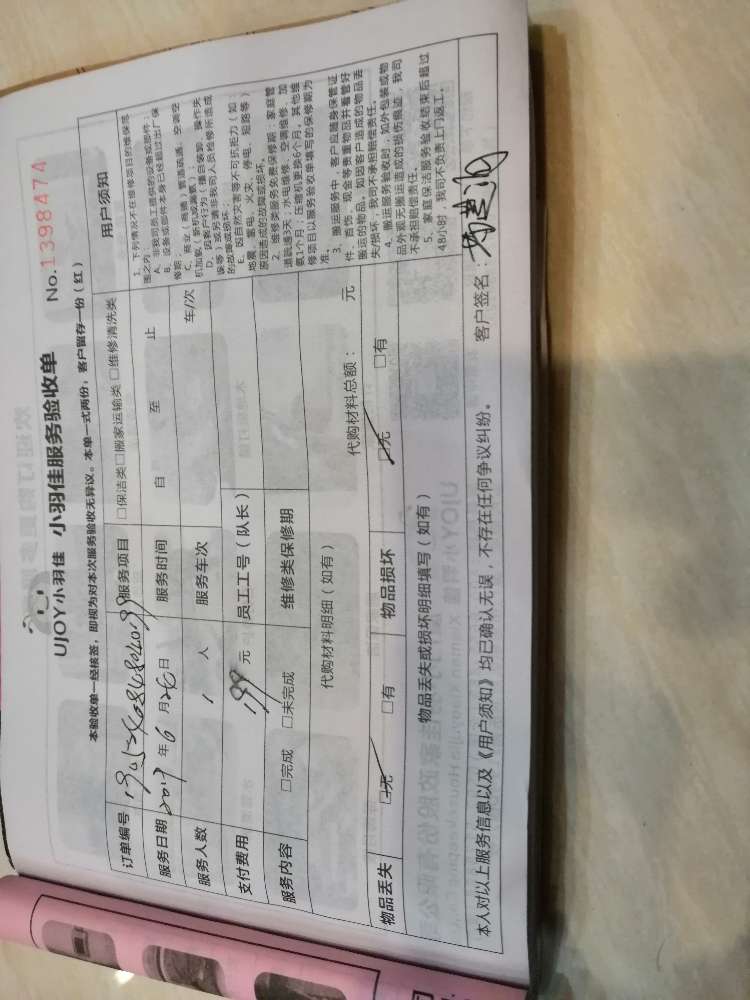 UJOY小羽佳 小羽佳服务验收单 No.1398474
本验收单一经核签，即视为对本次服务验收无异议。本单一式两份，客户留存一份（红）
订单编号
服务项目 □保洁类 □搬家运输类 □维修清洗类
服务日期 2019 年 6 月 26 日
服务时间 自 至 止
服务人数 1 人
服务车次 车/次
支付费用 199 元
员工工号（队长）
服务内容 □完成 □未完成
维修类保修期
代购材料明细（如有） 代购材料总额： 元
物品丢失 □无 □有
物品损坏 □无 □有
物品丢失或损坏明细填写（如有）
用户须知
1、下列情况不在维修项目的维保范
围之内：
A、非我司员工提供的设备或部件；
B、设备或部件本身已经超过出厂保
修期；
C、商业（商铺）管道疏通；空调空
机加氨、新机或漏氨）；
D、因客户行为（擅自装卸、操作失
误等）或另请非我司人员检修所造成
的故障或损坏；
E、因自然灾害等不可抗拒力（如：
地震、雷电、火灾、停电、短路等）
原因造成的故障或损坏。
2、维修类服务免费保修期：家庭管
道疏通3天；水电维修、空调维修、加
氨1个月；压缩机更换6个月，其他维
修项目以服务验收单填写的保修期为
准。
3、搬运服务中，客户应随身保管证
件、首饰、现金等贵重物品并看管好
搬运的物品。如因客户造成的物品丢
失/损坏，我司不承担赔偿责任。
4、搬运服务验收时，如外包装或物
品外观无搬运造成的损伤痕迹，我司
不承担赔偿责任。
5、家庭保洁服务验收结束后超过
48小时，我司不负责上门返工。
本人对以上服务信息以及《用户须知》均已确认无误，不存在任何争议纠纷。 客户签名：